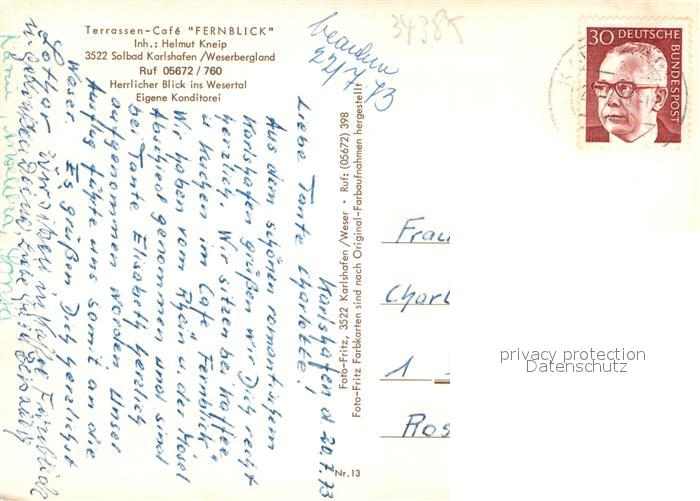 Terrassen-Café "FERNBLICK"
Inh.: Helmut Kneip
3522 Solbad Karlshafen /Weserbergland
Ruf 05672 / 760
Herrlicher Blick ins Wesertal
Eigene Konditorei
22/7/73
3438K
30 DEUTSCHE BUNDESPOST
Karlshafen d. 20.7.73
Liebe Tante Charlotte!
Aus dem schönen romantischem
Karlshafen grüßen wir Dich recht
herzlich. Wir sitzen bei Kaffee
u. Kuchen im Cafe "Fernblick"
Wir haben vom Rhein u. der Mosel
Abschied genommen und sind
bei Tante Elisabeth herzlich
aufgenommen worden. Unser
Ausflug führte uns somit an die
Weser. Es grüßen Dich herzlichst
Lothar
wir sitzen im Kaffee Fernblick
Foto-Fritz, 3522 Karlshafen /Weser • Ruf: (05672) 398
Foto-Fritz Farbkarten sind nach Original-Farbaufnahmen hergestellt
Nr. 13
Frau
Charl
1
Ros
privacy protection
Datenschutz